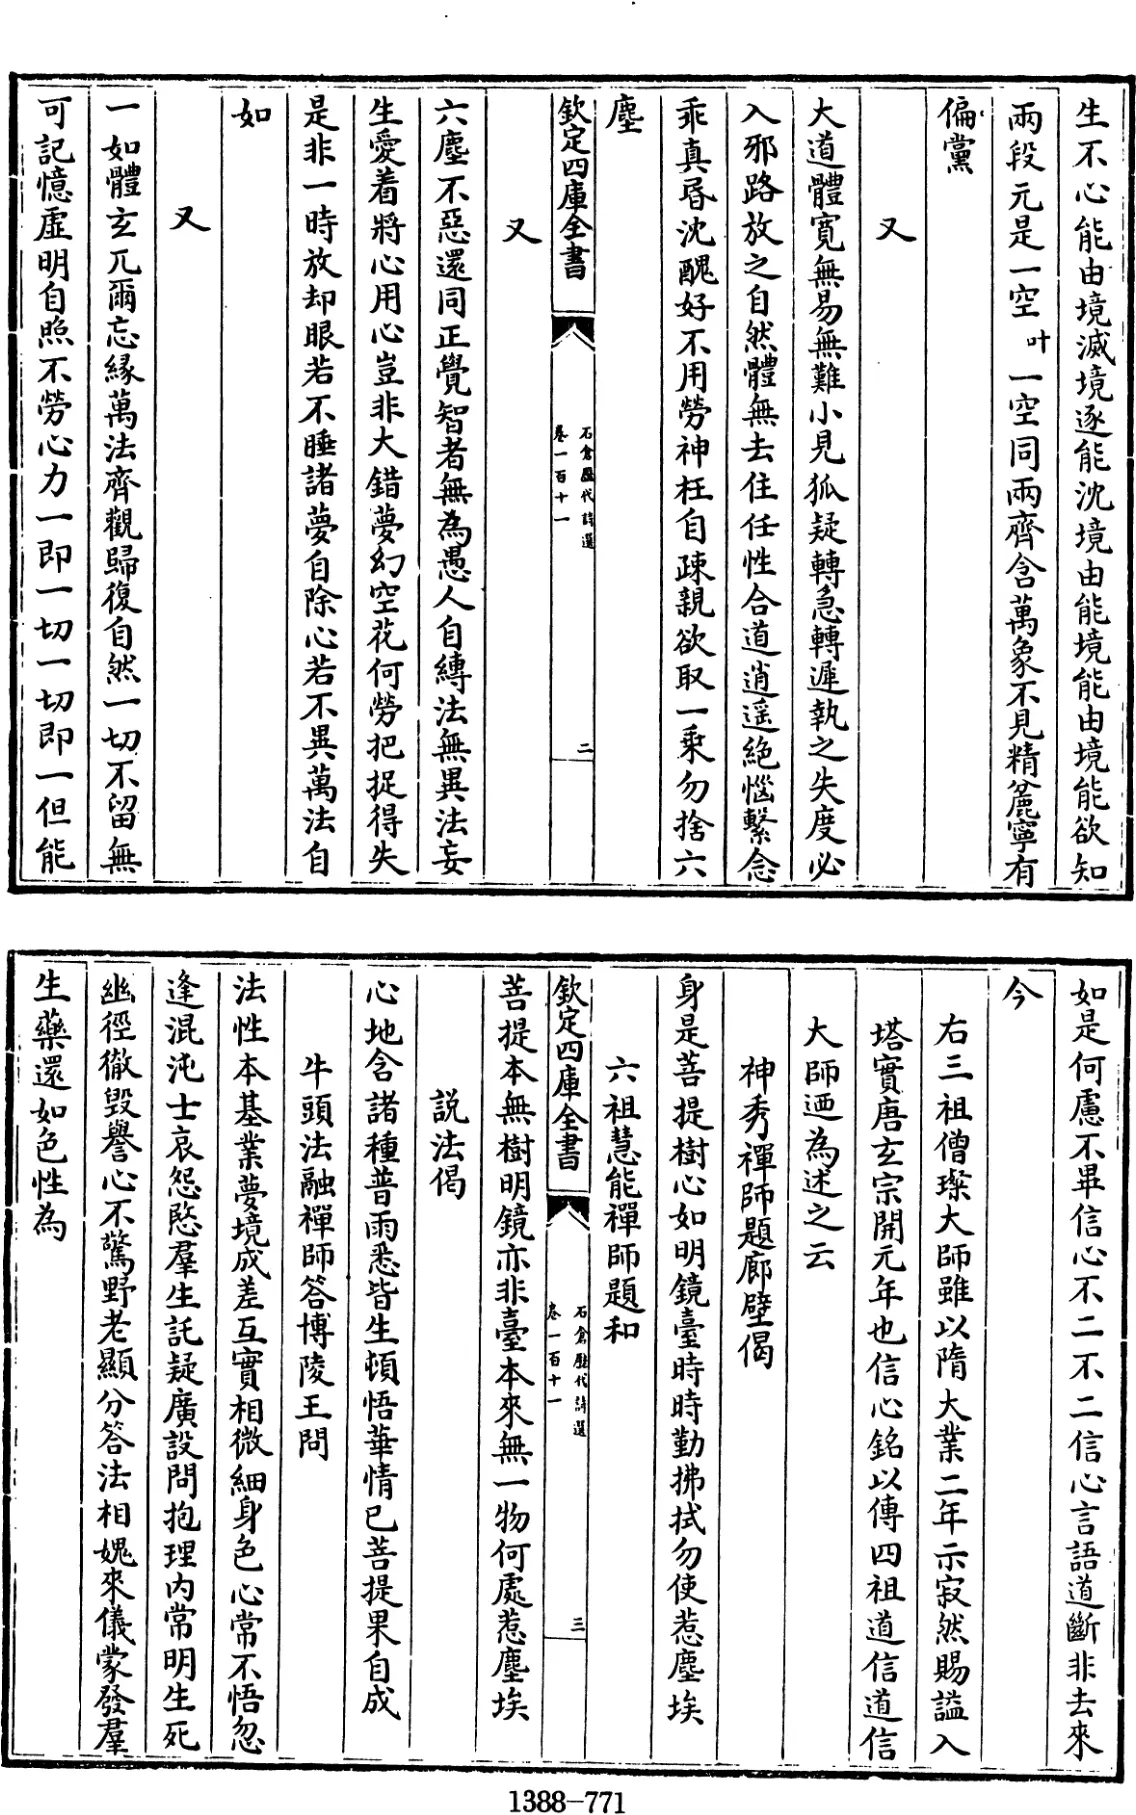 生不心能由境滅境逐能沈境由能境能由境能欲知
兩段元是一空 叶 一空同兩齊含萬象不見精麄寧有
偏黨
又
大道體寛無易無難小見狐疑轉急轉遲執之失度必
入邪路放之自然體無去住任性合道逍遥絶惱繫念
乖真昏沈醜好不用勞神枉自疎親欲取一乘勿捨六
塵
欽定四庫全書
石倉歴代詩選
卷一百十一
二
又
六塵不惡還同正覺智者無為愚人自縳法無異法妄
生愛着將心用心豈非大錯夢幻空花何勞把捉得失
是非一時放却眼若不睡諸夢自除心若不異萬法自
如
又
一如體玄兀爾忘縁萬法齊觀歸復自然一切不留無
可記憶虚明自照不勞心力一即一切一切即一但能
如是何慮不畢信心不二不二信心言語道斷非去來
今
右三祖僧璨大師雖以隋大業二年示寂然賜諡入
塔實唐玄宗開元年也信心銘以傳四祖道信道信
大師迺為述之云
神秀禪師題廊壁偈
身是菩提樹心如明鏡臺時時勤拂拭勿使惹塵埃
六祖慧能禪師題和
欽定四庫全書
石倉歴代詩選
卷一百十一
三
菩提本無樹明鏡亦非臺本來無一物何處惹塵埃
説法偈
心地含諸種普雨悉皆生頓悟華情已菩提果自成
牛頭法融禪師答博陵王問
法性本基業夢境成差互實相微細身色心常不悟忽
逢混沌士哀怨愍羣生託疑廣設問抱理内常明生死
幽徑徹毀譽心不驚野老顯分答法相媿來儀蒙發羣
生藥還如色性為
1388-771